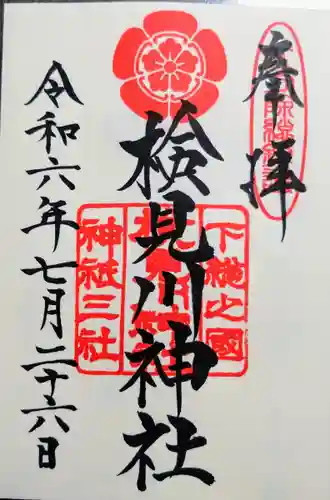 奉拝
検見川神社
下総之國
神祇三社
令和六年七月二十六日